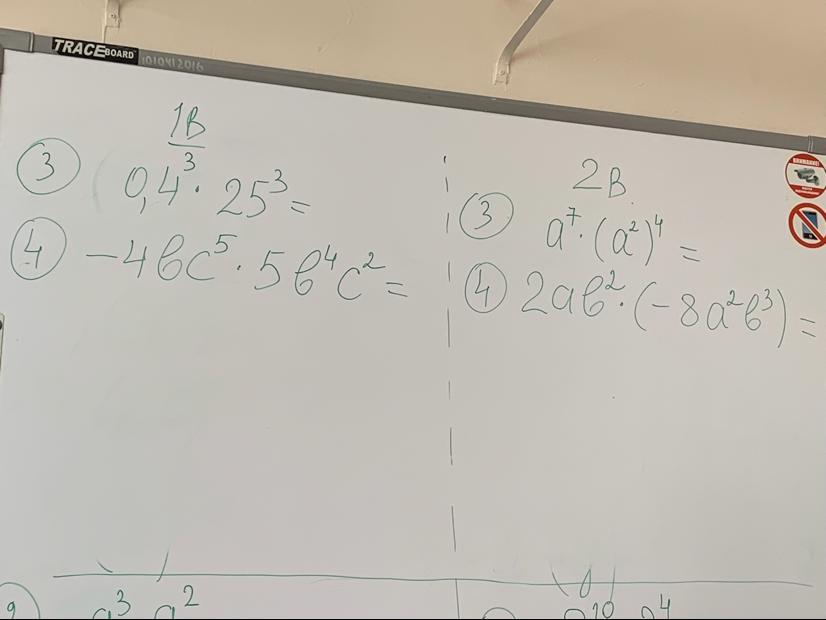 TRACEBOARD 1010412016
1В
③ 0,4³ · 25³ =
④ −4вс⁵ · 5в⁴с² =
2В.
③ a⁷ · (a²)⁴ =
④ 2aв² · (−8a²в³) =
ВНИМАНИЕ!
a³ a²